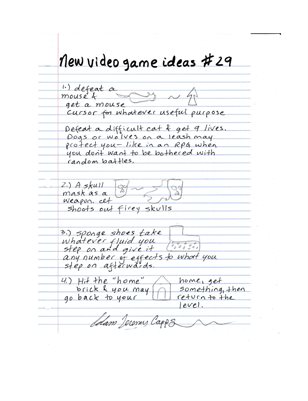 New video game ideas #29
1.) defeat a
mouse &
get a mouse
Cursor for whatever useful purpose
Defeat a difficult cat & get 9 lives.
Dogs or wolves on a leash may
protect you- like in an RPG when
you dont want to be bothered with
random battles.
2.) A skull
mask as a
weapon. Let
shoots out firey skulls
3.) Sponge shoes take
whatever fluid you
step on and give it
any number of effects to what you
step on afterwards.
4.) Hit the "home" home, get
brick & you may something, then
go back to your return to the
level.
Adam Jeremy Capps